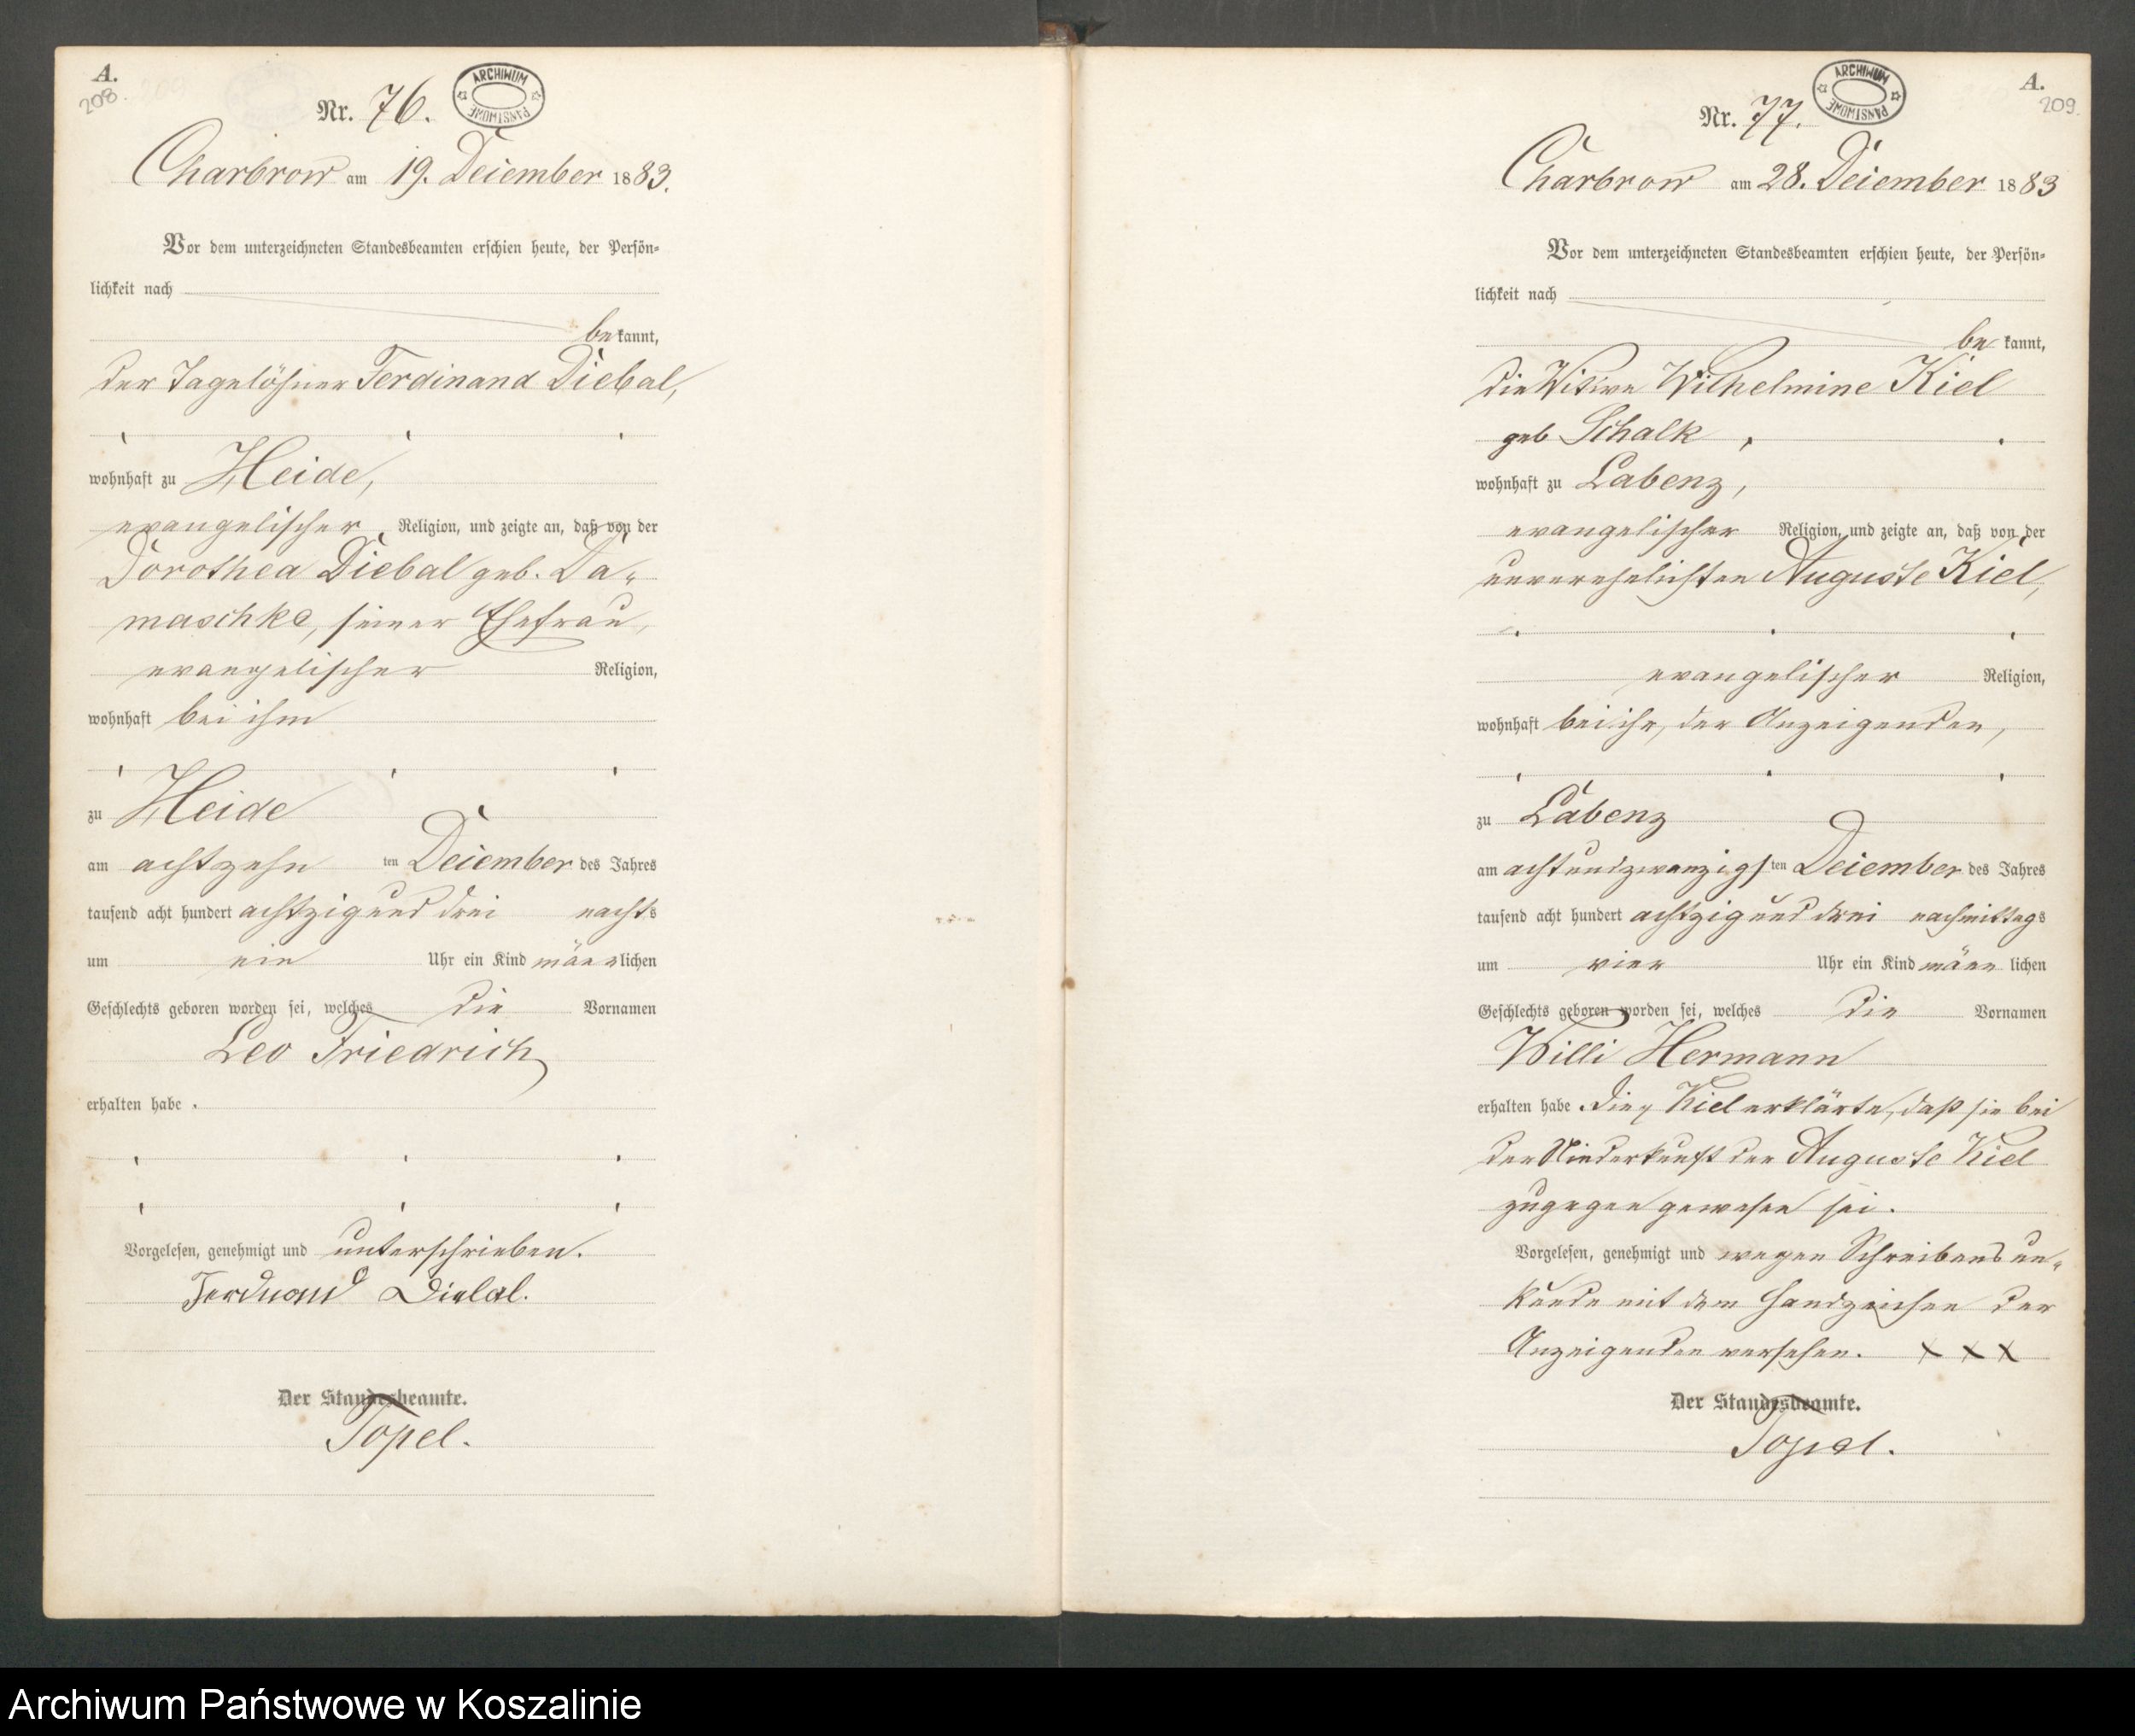 A.
208.
Nr. 76.
ARCHIWUM PAŃSTWOWE
Charbrow am 19. December 1883.
Vor dem unterzeichneten Standesbeamten erschien heute, der Persön-
lichkeit nach
bekannt,
der Tagelöhner Ferdinand Diebal,
wohnhaft zu Heide,
evangelischer Religion, und zeigte an, daß von der
Dorothea Diebal geb. Da-
maschke, seiner Ehefrau,
evangelischer Religion,
wohnhaft bei ihm
zu Heide
am achtzehn ten December des Jahres
tausend acht hundert achtzig und drei nachts
um ein Uhr ein Kind männlichen
Geschlechts geboren worden sei, welches die Vornamen
Leo Friedrich
erhalten habe.
Vorgelesen, genehmigt und unterschrieben.
Ferdinand Diebal.
Der Standesbeamte.
Topel.
A.
209.
Nr. 77.
ARCHIWUM PAŃSTWOWE
Charbrow am 28. December 1883
Vor dem unterzeichneten Standesbeamten erschien heute, der Persön-
lichkeit nach
bekannt,
die Witwe Wilhelmine Kiel
geb Schalk,
wohnhaft zu Labenz,
evangelischer Religion, und zeigte an, daß von der
unverehelichten Auguste Kiel,
evangelischer Religion,
wohnhaft bei ihr, der Anzeigenden,
zu Labenz
am achtundzwanzigsten December des Jahres
tausend acht hundert achtzig und drei nachmittags
um vier Uhr ein Kind männlichen
Geschlechts geboren worden sei, welches die Vornamen
Willi Hermann
erhalten habe. Die Kiel erklärte, daß sie bei
der Niederkunft der Auguste Kiel
zugegen gewesen sei.
Vorgelesen, genehmigt und wegen Schreibensun-
kunde mit dem Handzeichen der
Anzeigenden versehen. X X X
Der Standesbeamte.
Topel.
Archiwum Państwowe w Koszalinie